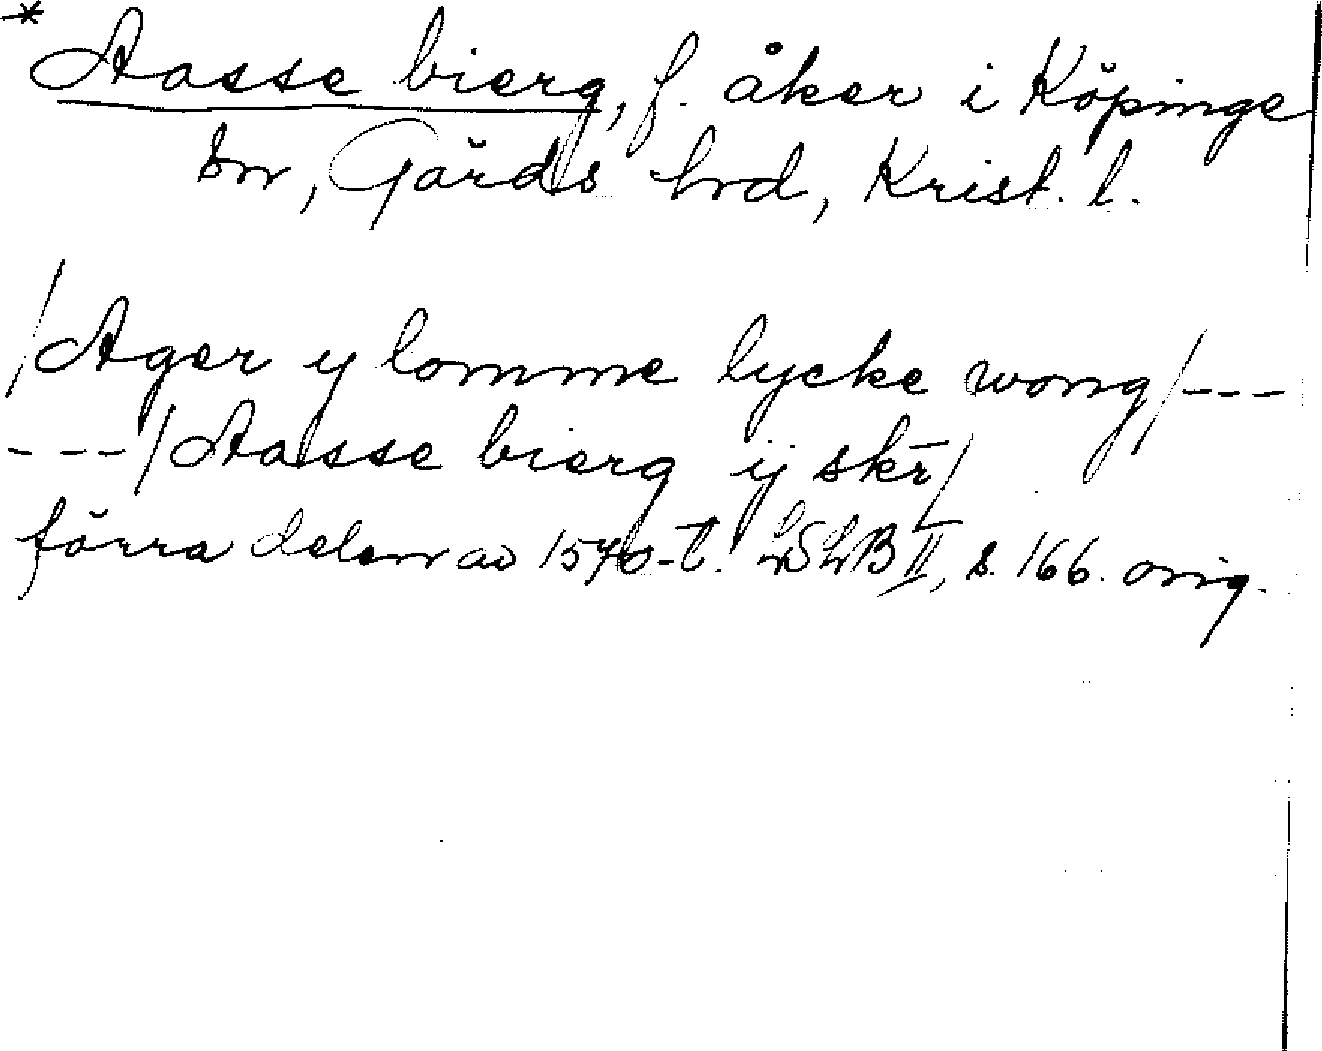 *Aasse bierg, f. åker i Köpinge
sn, Gärds hrd, Krist. l.
/Ager y lomme lycke wong/---
---/Aasse bierg ij skr̄/
förra delen av 1570-t. LSLB II, s. 166. orig.